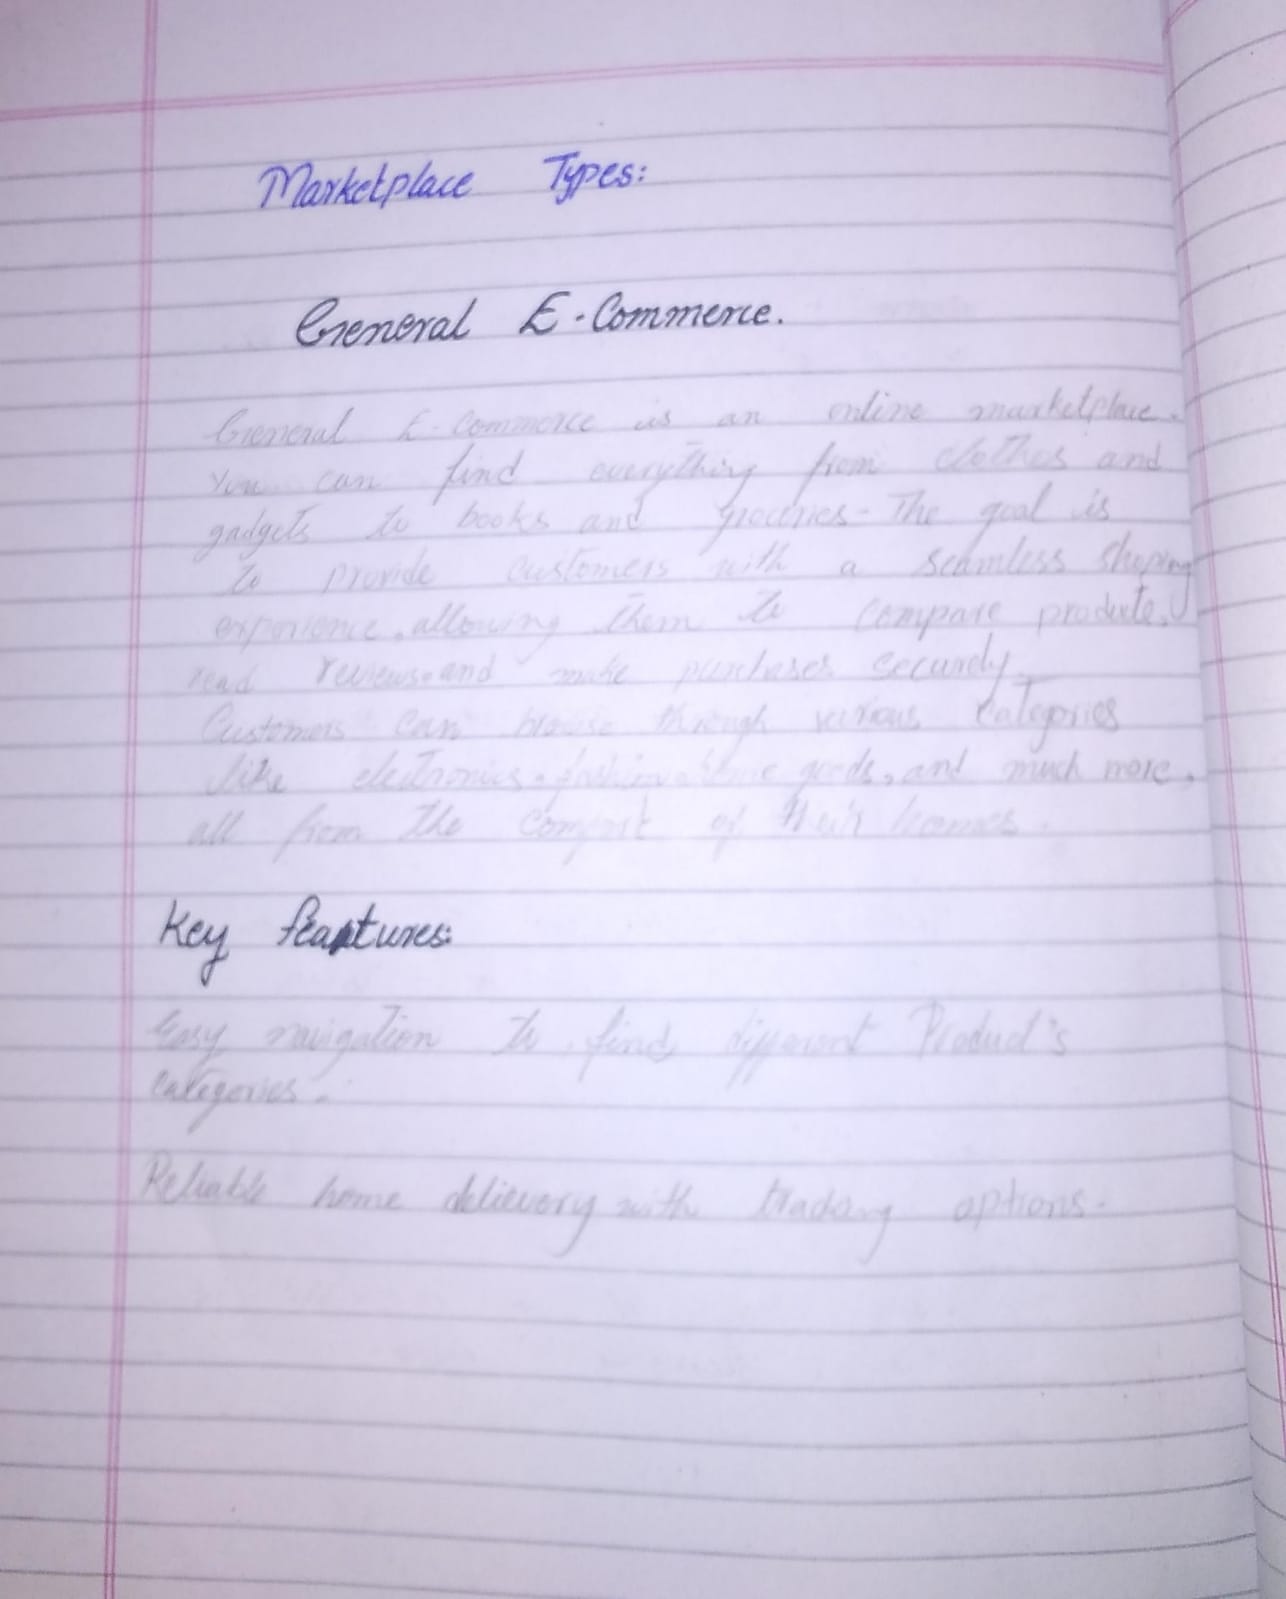 Marketplace Types:
General E-Commerce.
General E-Commerce is an online marketplace.
You can find everything from clothes and
gadgets to books and groceries. The goal is
to provide customers with a seamless shoping
experience, allowing them to compare products,
read reviews, and make purchases securely.
Customers can browse through various categories
like electronics, fashion, home goods, and much more,
all from the comfort of their homes.
Key features:
Easy navigation to find different Product's
categories.
Reliable home delievery with options.